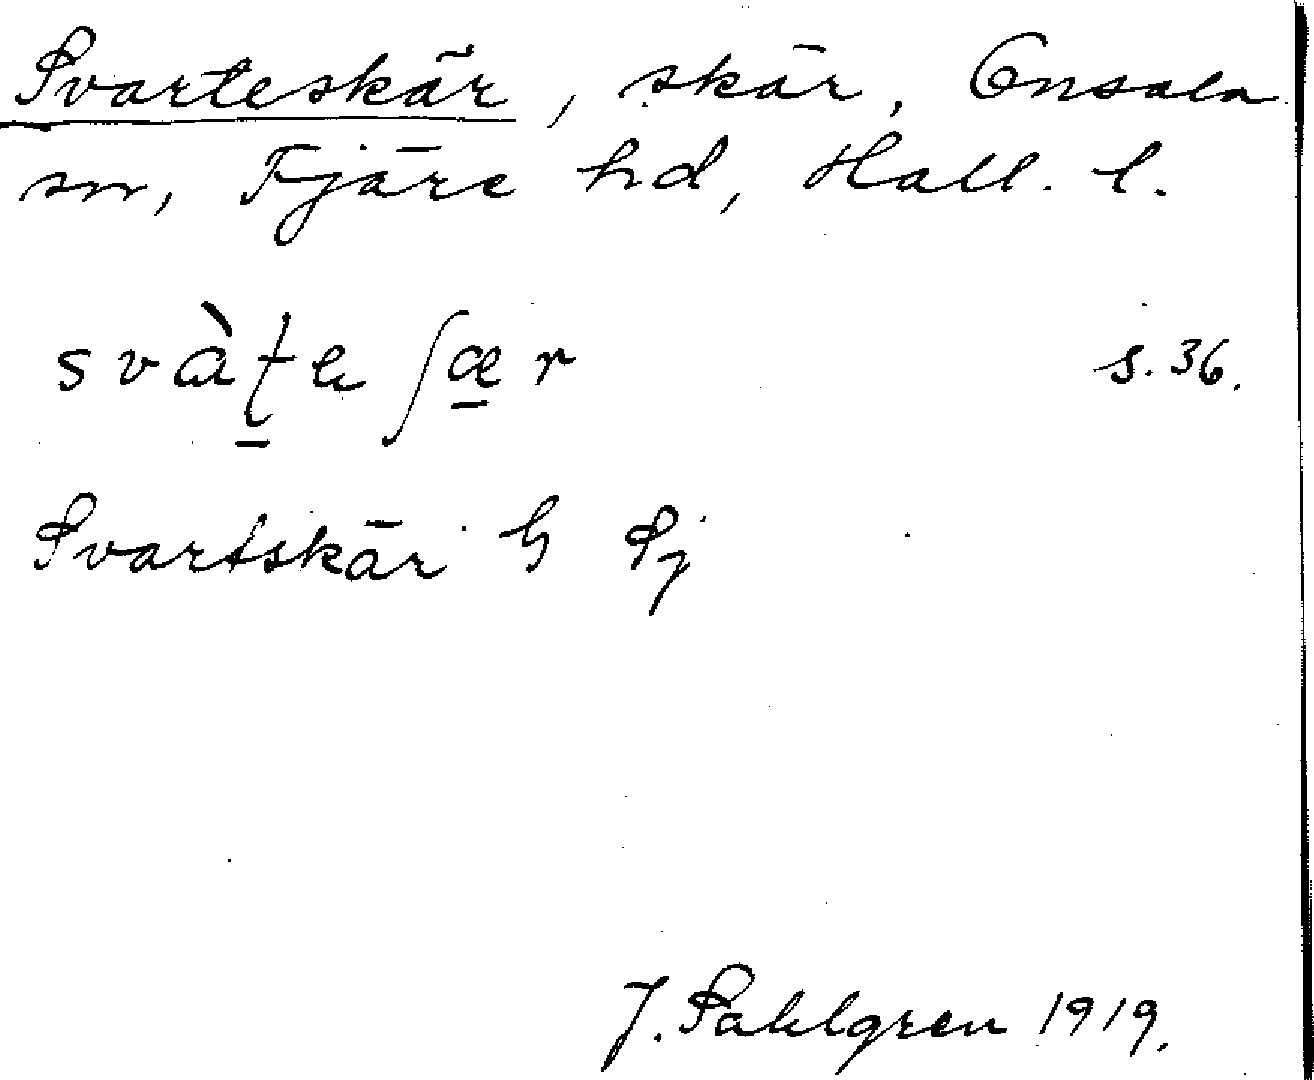 Svarteskär, skär, Onsala
sn, Fjäre hd, Hall. l.
svàʈe ʃær s. 36.
Svartskär G Sj
J. Sahlgren 1919.